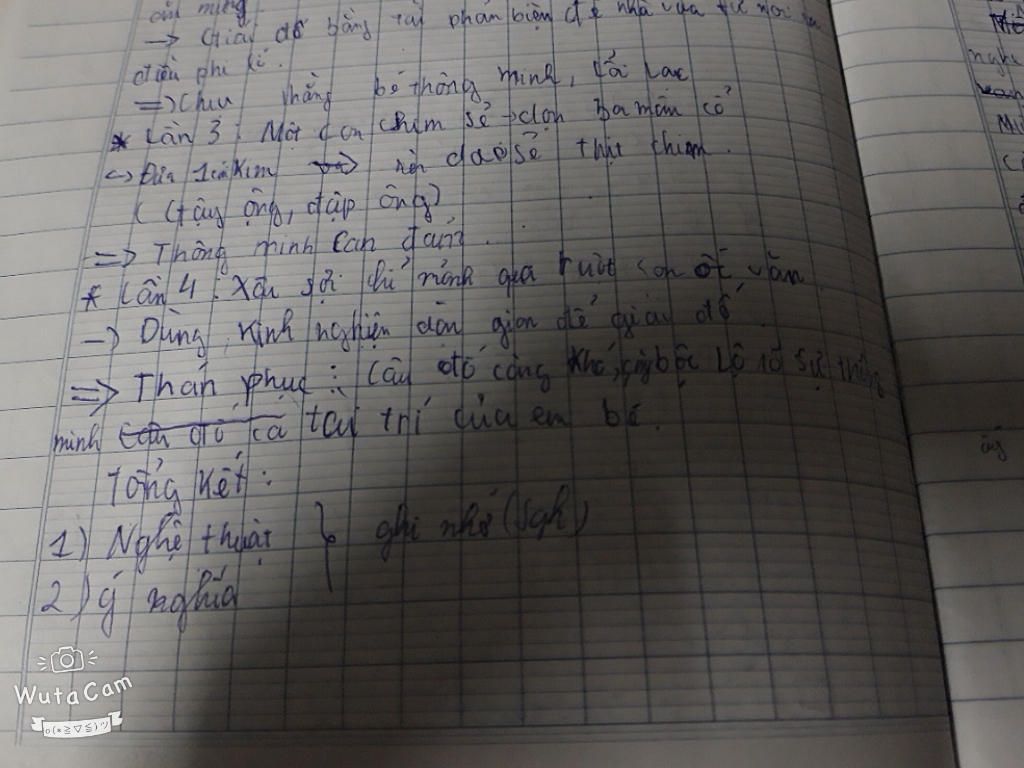 của miệng
→ Giải đố bằng tài phản biện để nhà vua tự nói
điều phi lí.
=> Chịu thằng bé thông minh, lỗi lạc
* Lần 3: Một con chim sẻ → dọn ba mâm cỗ
<-> Đưa 1 cái kim rèn dao sẻ thịt chim.
( Gậy ông, đập ông)
=> Thông minh can đảm.
* Lần 4: Xâu sợi chỉ mảnh qua ruột con ốc vặn
-> Dùng kinh nghiện dân gian để giải đố.
=> Thán phục: Câu đố càng khó, càng bộc lộ rõ sự thông
minh câu đố cả tài trí của em bé.
Tổng kết:
1) Nghệ thuật } ghi nhớ (sgk)
2) ý nghĩa
WutaCam
o(*≧▽≦)ツ